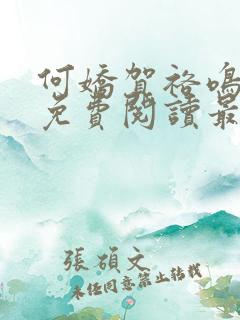 何嬌賀裕鳴
免費閱讀最
張碩文
未经同意禁止转载